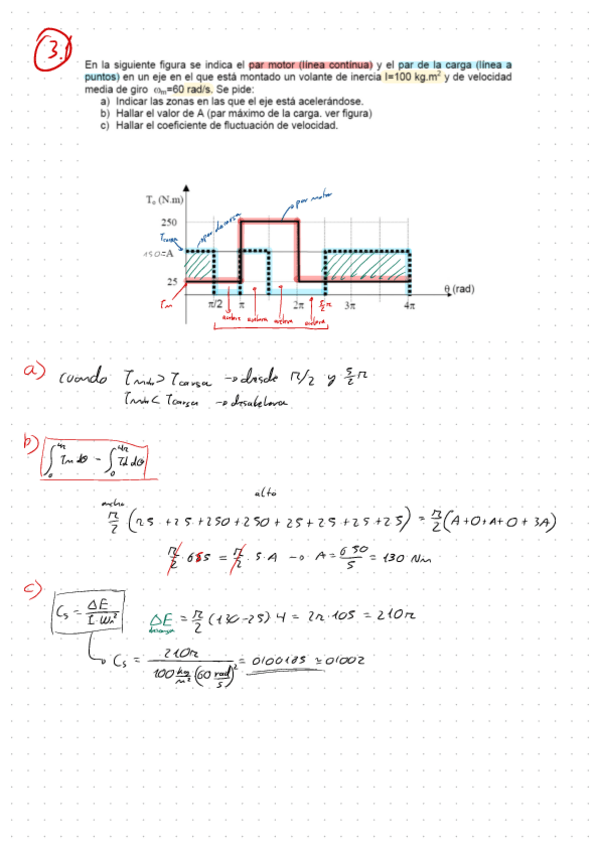 3.
En la siguiente figura se indica el par motor (línea continua) y el par de la carga (línea a
puntos) en un eje en el que está montado un volante de inercia I=100 kg.m² y de velocidad
media de giro ωm=60 rad/s. Se pide:
a) Indicar las zonas en las que el eje está acelerándose.
b) Hallar el valor de A (par máximo de la carga. ver figura)
c) Hallar el coeficiente de fluctuación de velocidad.
T, (N.m)
par motor
par de carga
250
Tcarga
130=A
25
Tm
θ (rad)
π/2 π 2π 5/2π 3π 4π
acelera acelera acelera acelera
a) cuando Tmotor > Tcarga → desde π/2 y 5/2 π
Tmotor < Tcarga → desacelera
b) ∫₀^4π Tm dθ - ∫₀^4π Td dθ
ancho alto
π/2 (25 + 25 + 250 + 250 + 25 + 25 + 25 + 25) = π/2 (A+0+A+0+3A)
π/2 · 650 = π/2 · 5 · A → A = 650/5 = 130 Nm
c) Cs = ΔE / I · Wm²
ΔE = π/2 (130-25) 4 = 2π · 105 = 210π
Cs = 210π / 100 kg/m² (60 rad/s)² = 0'00185 ≃ 0'002